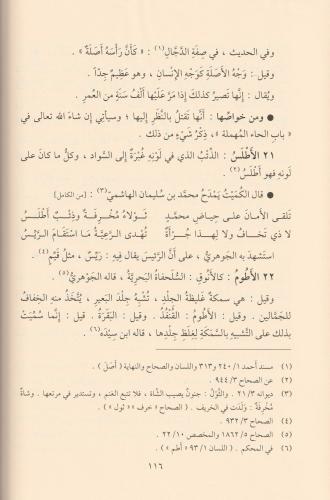 وفي الحديث ، في صِفَةِ الدَّجَّالِ(١) : « كَأَنَّ رَأْسَهُ أَصَلَةٌ » .
وقيل : وَجْهُ الأَصَلَةِ كَوَجْهِ الإِنسانِ ، وهو عَظِيمٌ جِدّاً .
ويُقال : إِنَّها تَصِيرُ كذلكَ إِذا مَرَّ عَلَيْها أَلْفُ سَنَةٍ من العُمرِ .
● ومن خواصِّها : أَنَّها تَقتلُ بالنَّظَرِ إِليها ؛ وسيأتي إِن شاءَ الله تعالى في
« بابِ الحاءِ المُهملة » ، ذِكْرُ شَيْءٍ من ذلك .
٢١ الأَطْلَسُ : الذِّئْبُ الذي في لَوْنِهِ غُبْرَةٌ إِلى السَّواد ، وكلُّ ما كانَ على
لونِهِ فهو أَطْلَسُ(٢) .
● قال الكُمَيْتُ يَمْدَحُ محمَّد بن سُليمان الهاشميّ(٣) : [من الكامل]
تَلقى الأَمانَ على حِياضِ محمَّدٍ ثَوْلاءُ مُخْرِفَةٌ وذِئْبٌ أَطْلَسُ
لا ذي تَخَافُ ولا لِهذا جُرْأَةٌ تُهْدى الرَّعِيَّةُ ما اسْتَقَامَ الرَّيِّسُ
استشهدَ به الجَوهريُّ ، على أَنَّ الرَّئيسَ يقال فيه : رَيِّسٌ ، مثل قَيِّمٍ(٤) .
٢٢ الأَطُومُ : كالأَنُوقِ : السُّلَحْفاةُ البَحرِيَّةُ ، قاله الجَوْهَريُّ(٥) .
وقيل : هي سمكةٌ غَليظةُ الجِلدِ ، تُشْبِهُ جِلْدَ البَعيرِ ، يُتَّخَذُ منهِ الخِفافُ
للجَمَّالين . وقيل : الأَطُومُ : القُنْفُذُ . وقيل : البَقَرَةُ . قيل : إِنَّما سُمِّيَتْ
بذلك على التَّشبيهِ بِالسَّمَكَةِ لِغِلَظِ جِلْدِها ، قاله ابن سِيْدَه(٦) .
(١) مسند أحمد ١/ ٢٤٠ و٣١٣ واللسان والصحاح والنهاية ( أصل ) .
(٢) عن الصحاح ٣/ ٩٤٤ .
(٣) ديوانه ٣/ ٢١ . والثَّوَلُ : جنون يصيب الشّاة ، فلا تتبع الغنم ، وتستدير في مرتعها . وشاةٌ
مُخْرِفَةٌ : وَلَدَت في الخريف . ( الصحاح « خرف » « ثول » ) .
(٤) الصحاح ٣/ ٩٣٢ .
(٥) الصحاح ٥/ ١٨٦٢ والمخصص ١٠/ ٢٢ .
(٦) في المحكم . ( اللسان ١/ ٩٣ « أطم » ) .
١١٦